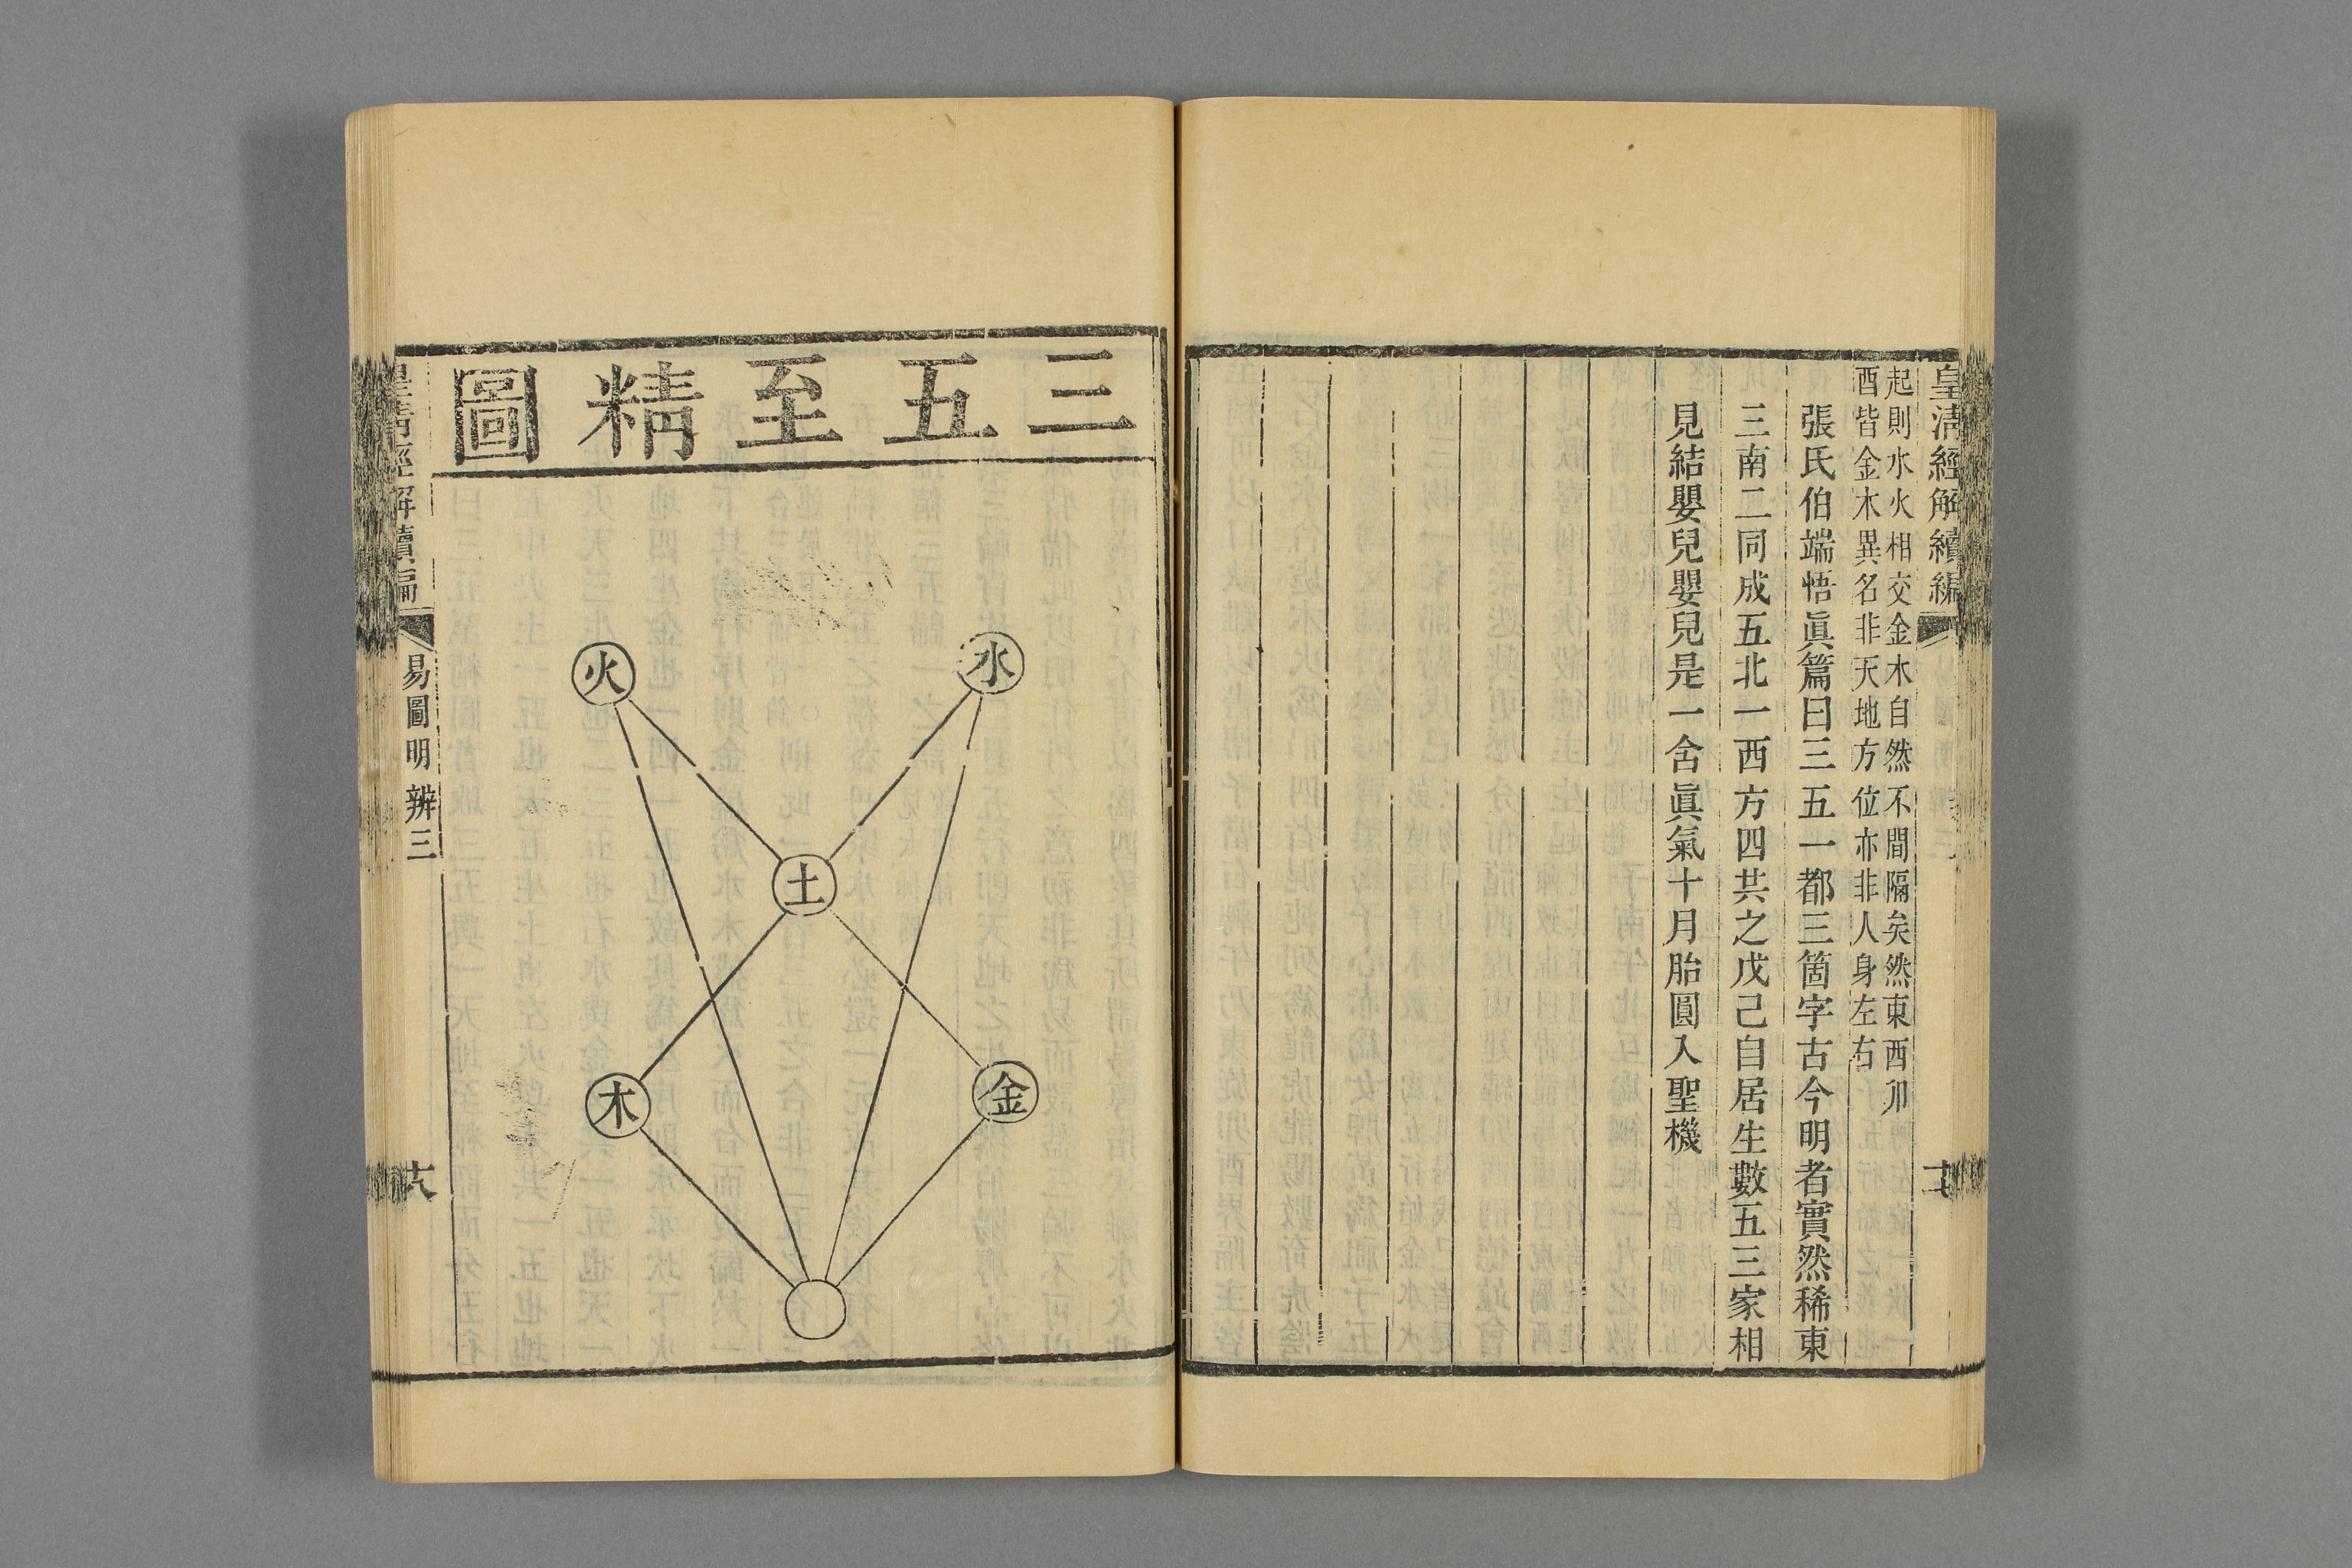 皇清經解續編
起則水火相交金木自然不間隔矣然東西卯
酉皆金木異名非天地方位亦非人身左右
張氏伯端悟眞篇曰三五一都三箇字古今明者實然稀東
三南二同成五北一西方四共之戊己自居生數五三家相
見結嬰兒嬰兒是一含眞氣十月胎圓入聖機
三五至精圖
水
火
土
金
木
皇清經解續編
易圖明辨三